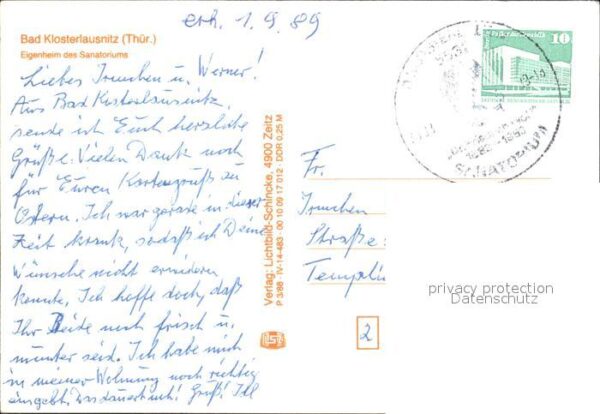 erh. 1.9.89
Bad Klosterlausnitz (Thür.)
Eigenheim des Sanatoriums
Liebes Trudchen u. Werner!
Aus Bad Klosterlausnitz,
sende ich Euch herzliche
Grüße. Vielen Dank noch
für Euren Kartengruß zu
Ostern. Ich war gerade in dieser
Zeit krank, sodaß ich Deine
Wünsche nicht erwidern
konnte, Ich hoffe doch, daß
Ihr Beide noch frisch u.
munter seid. Ich habe mich
in meiner Wohnung noch richtig
eingelebt. Was dauert noch! Gruß!
Verlag: Lichtbild-Schincke, 4900 Zeitz
P 3/88 IV-14-483 00 10 09 17 012 DDR 0,25 M
10
1883-1983
SANATORIUM
Fr.
Trudchen
Straße
Templin
2
privacy protection
Datenschutz